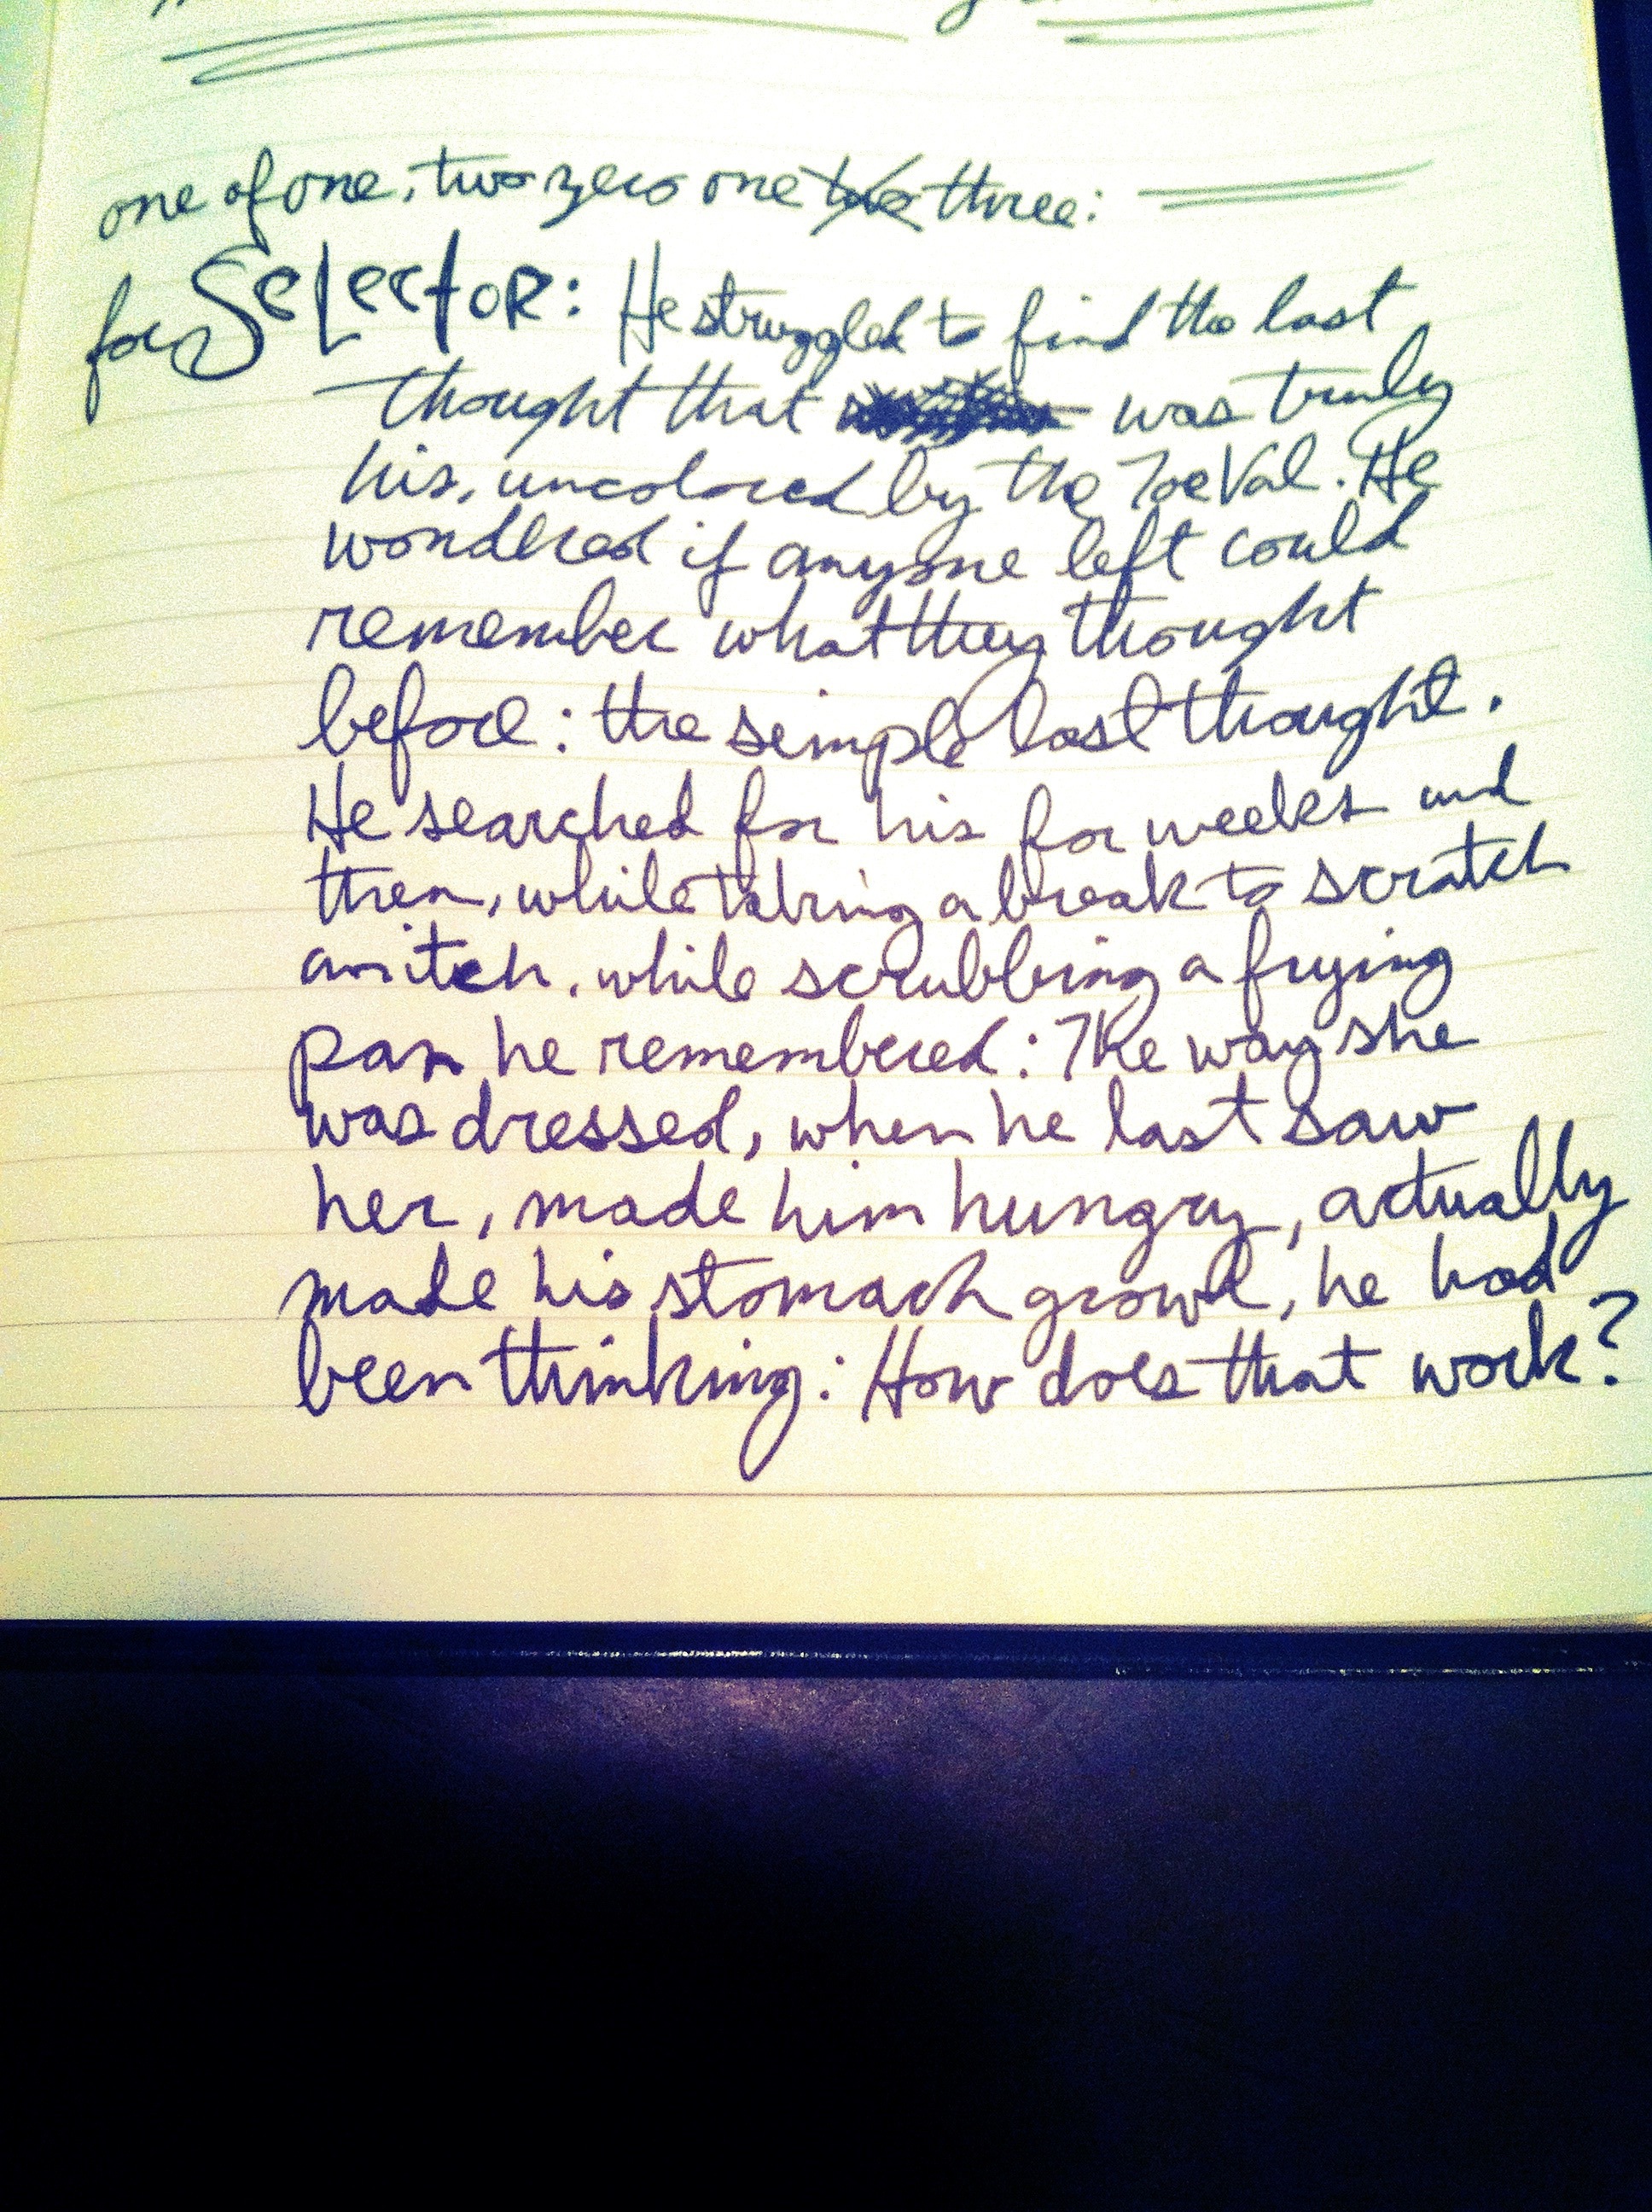 one of one, two zero one two three:
for SeLectoR: He struggled to find the last
thought that was truly
his, uncolored by the ToeVal. He
wondered if anyone left could
remember what they thought
before: the simple last thought.
He searched for his for weeks and
then, while taking a break to scratch
an itch, while scrubbing a frying
pan he remembered: The way she
was dressed, when he last saw
her, made him hungry, actually
made his stomach growl, he had
been thinking: How does that work?